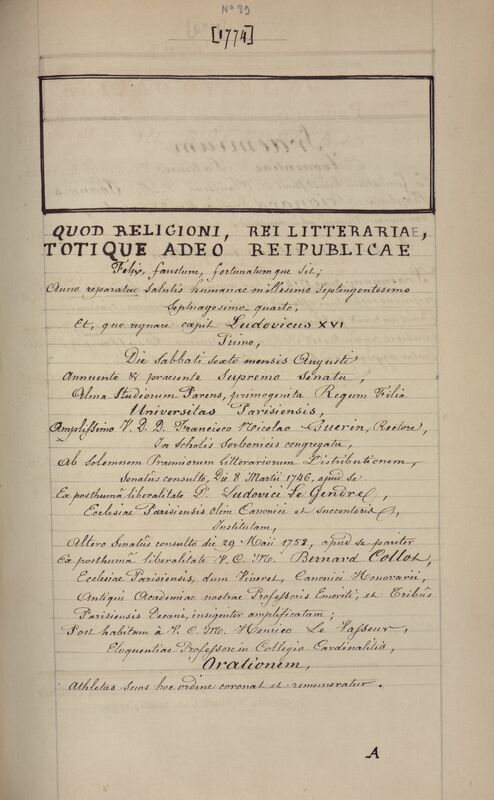 N° 29
[1774]
QUOD RELIGIONI, REI LITTERARIAE,
TOTIQUE ADEO REIPUBLICAE
Felix, faustum, fortunatumque sit;
Anno reparatae Salutis humanae millesimo Septingentesimo
Septuagesimo-quarto,
Et, quo regnare coepit Ludovicus XVI
Primo,
Die Sabbati sexto mensis Augusti
Annuente & praesente Supremo Senatu,
Alma Studiorum Parens, primogenita Regum Filia
Universitas Parisiensis,
Amplissimo V. D. D. Francisco Nicolao Guerin, Rectore,
In Scholis Sorbonicis congregata,
Ab Solemnem Praemiorum Litterariorum Distributionem,
Senatus consulto, Die 8 Martii 1746, apud se
Ex posthumâ liberalitate D. Ludovici Le Gendre,
Ecclesiae Parisiensis olim Canonici et succentoris,
Institutam,
Altero Senatûs consulto die 29 Maii 1758, apud se pariter
Ex posthumâ liberalitate V. C. M. Bernard Collot,
Ecclesiae Parisiensis, dum viveret, Canonici Honorarii,
Antiqui Academiae nostrae Professoris Emeriti, et Tribûs
Parisiensis Decani, insigniter amplificatam;
Post habitam à V. C. M. Henrico Le Vasseur,
Eloquentiae Professore in Collegio Cardinalitio,
Orationem,
Athletas suos hoc ordine coronat et remuneratur.
A